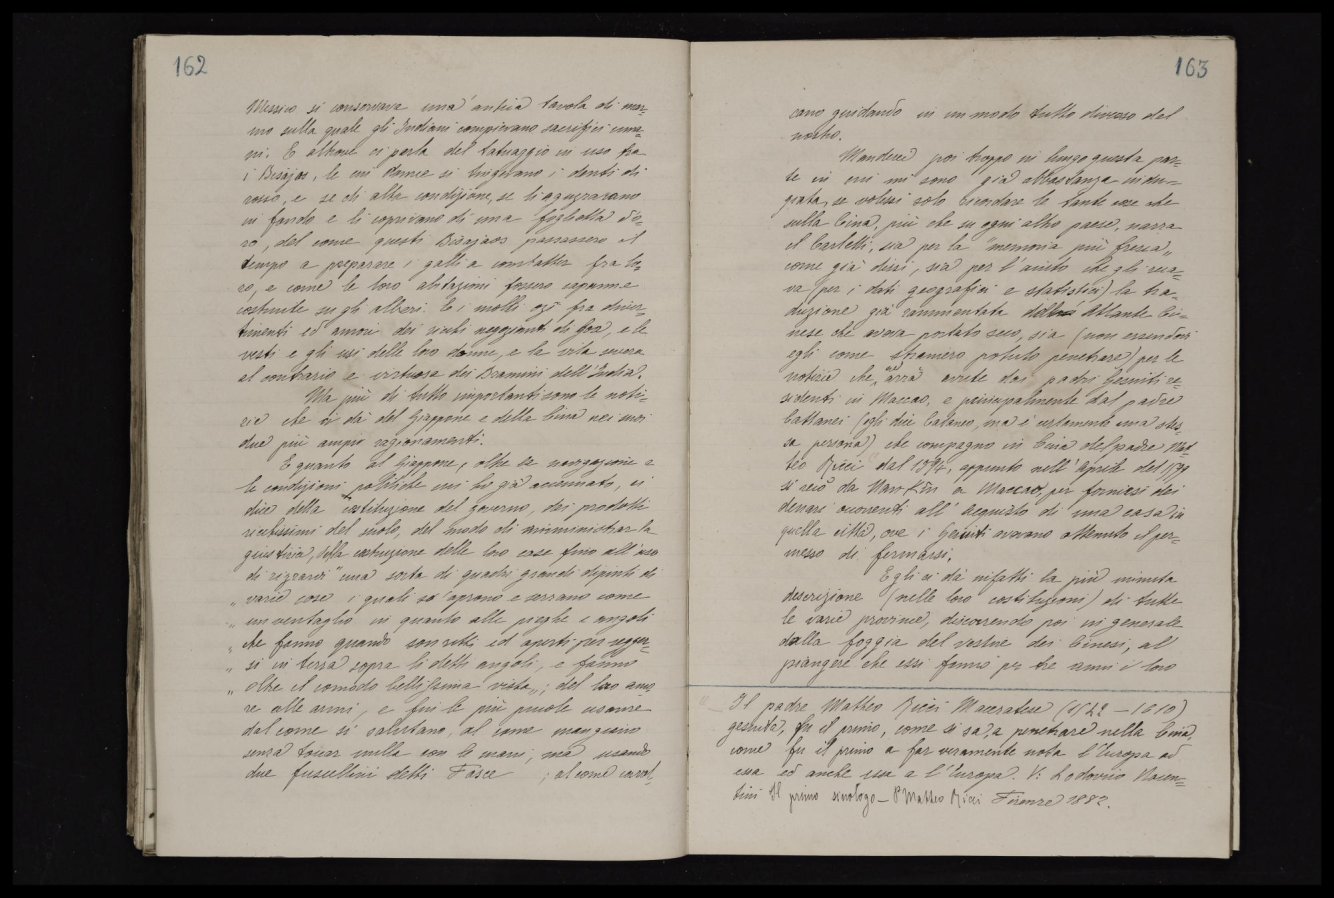 162
Messico si conservava una antica tavola di mar=
mo sulla quale gli Indiani compievano sacrifizi uma=
ni. E altrove ci parla del tatuaggio in uso fra
i Bisajos, le cui donne si tingevano i denti di
rosso, e se di alta condizione, se li aguzzavano
in fondo e li coprivano di una foglietta d'o=
ro, del come questi Bisajaos passassero il
tempo a preparare i galli a combatter fra lo=
ro, e come le loro abitazioni fossero capanne
costruite su gli alberi. E i molli ozi fra diver=
timenti ed amori dei ricchi negozianti di Goa, e le
vesti e gli usi delle loro donne, e la vita
al contrario e virtuosa dei Bramini dell'India.
Ma più di tutto importanti sono le noti=
zie che ci dà del Giappone e della Cina nei suoi
due più ampii ragionamenti.
E quanto al Giappone, oltre la navigazione e
le condizioni politiche cui ho già accennato, ci
dice della istituzione del governo, dei prodotti
ricchissimi del suolo, del modo di amministrar la
giustizia, della costruzione delle loro case fino all'uso
di "una sorta di quadri grandi dipinti di
„ varie cose i quali sa aprono e serrano come
„ un ventaglio in quanto alle pieghe e angoli
„ che fanno quando son ritti, ed aperti per regger=
„ si in terra sopra li detti angoli, e fanno
„ oltre il comodo bellissima vista„; del loro amo
re alle armi, e fin le più piccole usanze
dal come si salutano, al come mangiano
senza toccar nulla con le mani, ma usando
due fuscellini detti Fasce ; al come
163
cano guidando in un modo tutto diverso dal
nostro.
Manderei poi troppo in lungo questa par=
te in cui mi sono già abbastanza indu=
giata, se volessi solo ricordare le tante cose che
sulla Cina, più che su ogni altro paese, narra
il Carletti, sia per la "memoria più fresca„
come già dissi, sia per l'aiuto che gli reca=
va (per i dati geografici e statistici) la tra=
duzione già rammentata dell'Atlante Ci=
nese che aveva portato seco, sia (non essendovi
egli come straniero potuto penetrare) per le
notizie che avrà avute dai padri Gesuiti re=
sidenti in Maccao, e principalmente dal padre
Cattanei (egli dice Cataneo, ma è certamente una stes=
sa persona) che compagno in Cina del padre Mat=
teo Ricci dal 1594, appunto nell'Aprile del 1599
si recò da Nan-Kin a Maccao, per fornirsi dei
denari occorrenti all'acquisto di una casa in
quella città, ove i Gesuiti avevano ottenuto il per=
messo di fermarsi.
Egli ci dà infatti la più minuta
descrizione (nelle loro costituzioni) di tutte
le varie provincie, discorrendo poi in generale
dalla foggia del vestire dei Cinesi, al
piangere che essi fanno per tre anni i loro
Il padre Matteo Ricci Maceratese (1552-1610)
gesuita, fu il primo, come si sa, a penetrare nella Cina,
come fu il primo a far veramente nota l'Europa ad
essa ed anche essa a l'Europa. V: Lodovico Nocen=
tini Il primo sinologo - P. Matteo Ricci Firenze 1882.